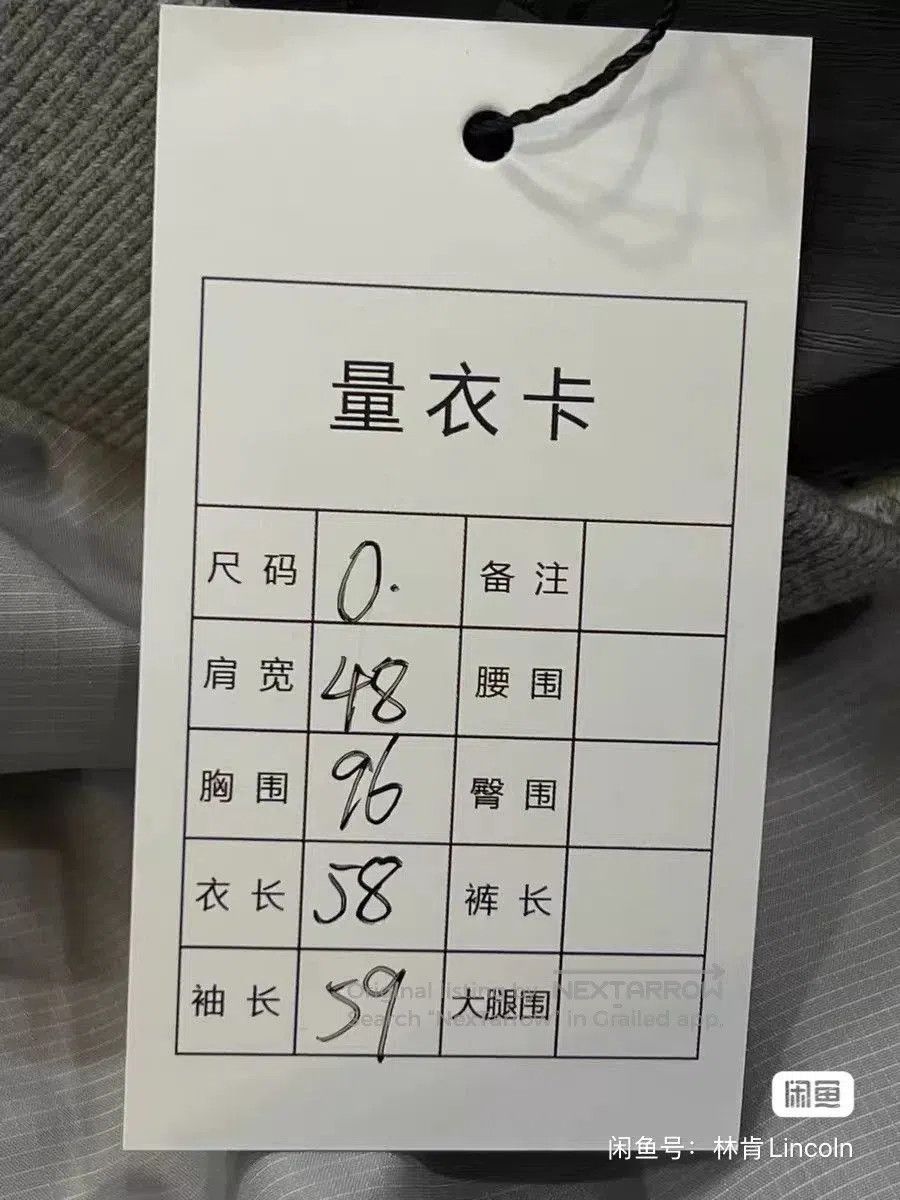 量衣卡
尺码 0. 备注
肩宽 48 腰围
胸围 96 臀围
衣长 58 裤长
袖长 59 大腿围
Original listing by NEXTARROW
Search "NexTarrow" in Grailed app.
闲鱼
闲鱼号：林肯Lincoln